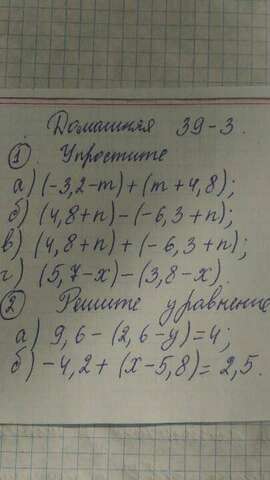 Домашняя 39-3.
① Упростите
а) (-3,2-m)+(m+4,8);
б) (4,8+n)-(-6,3+n);
в) (4,8+n)+(-6,3+n);
г) (5,7-x)-(3,8-x).
② Решите уравнение
а) 9,6-(2,6-y)=4;
б) -4,2+(x-5,8)=2,5.